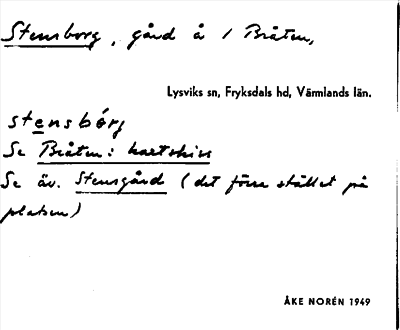 Stensborg, gård å 1 Bråten,
Lysviks sn, Fryksdals hd, Värmlands län.
stensbórg
Se Bråten: kartskiss
Se äv. Stensgård (det förra stället på
platsen)
ÅKE NORÉN 1949